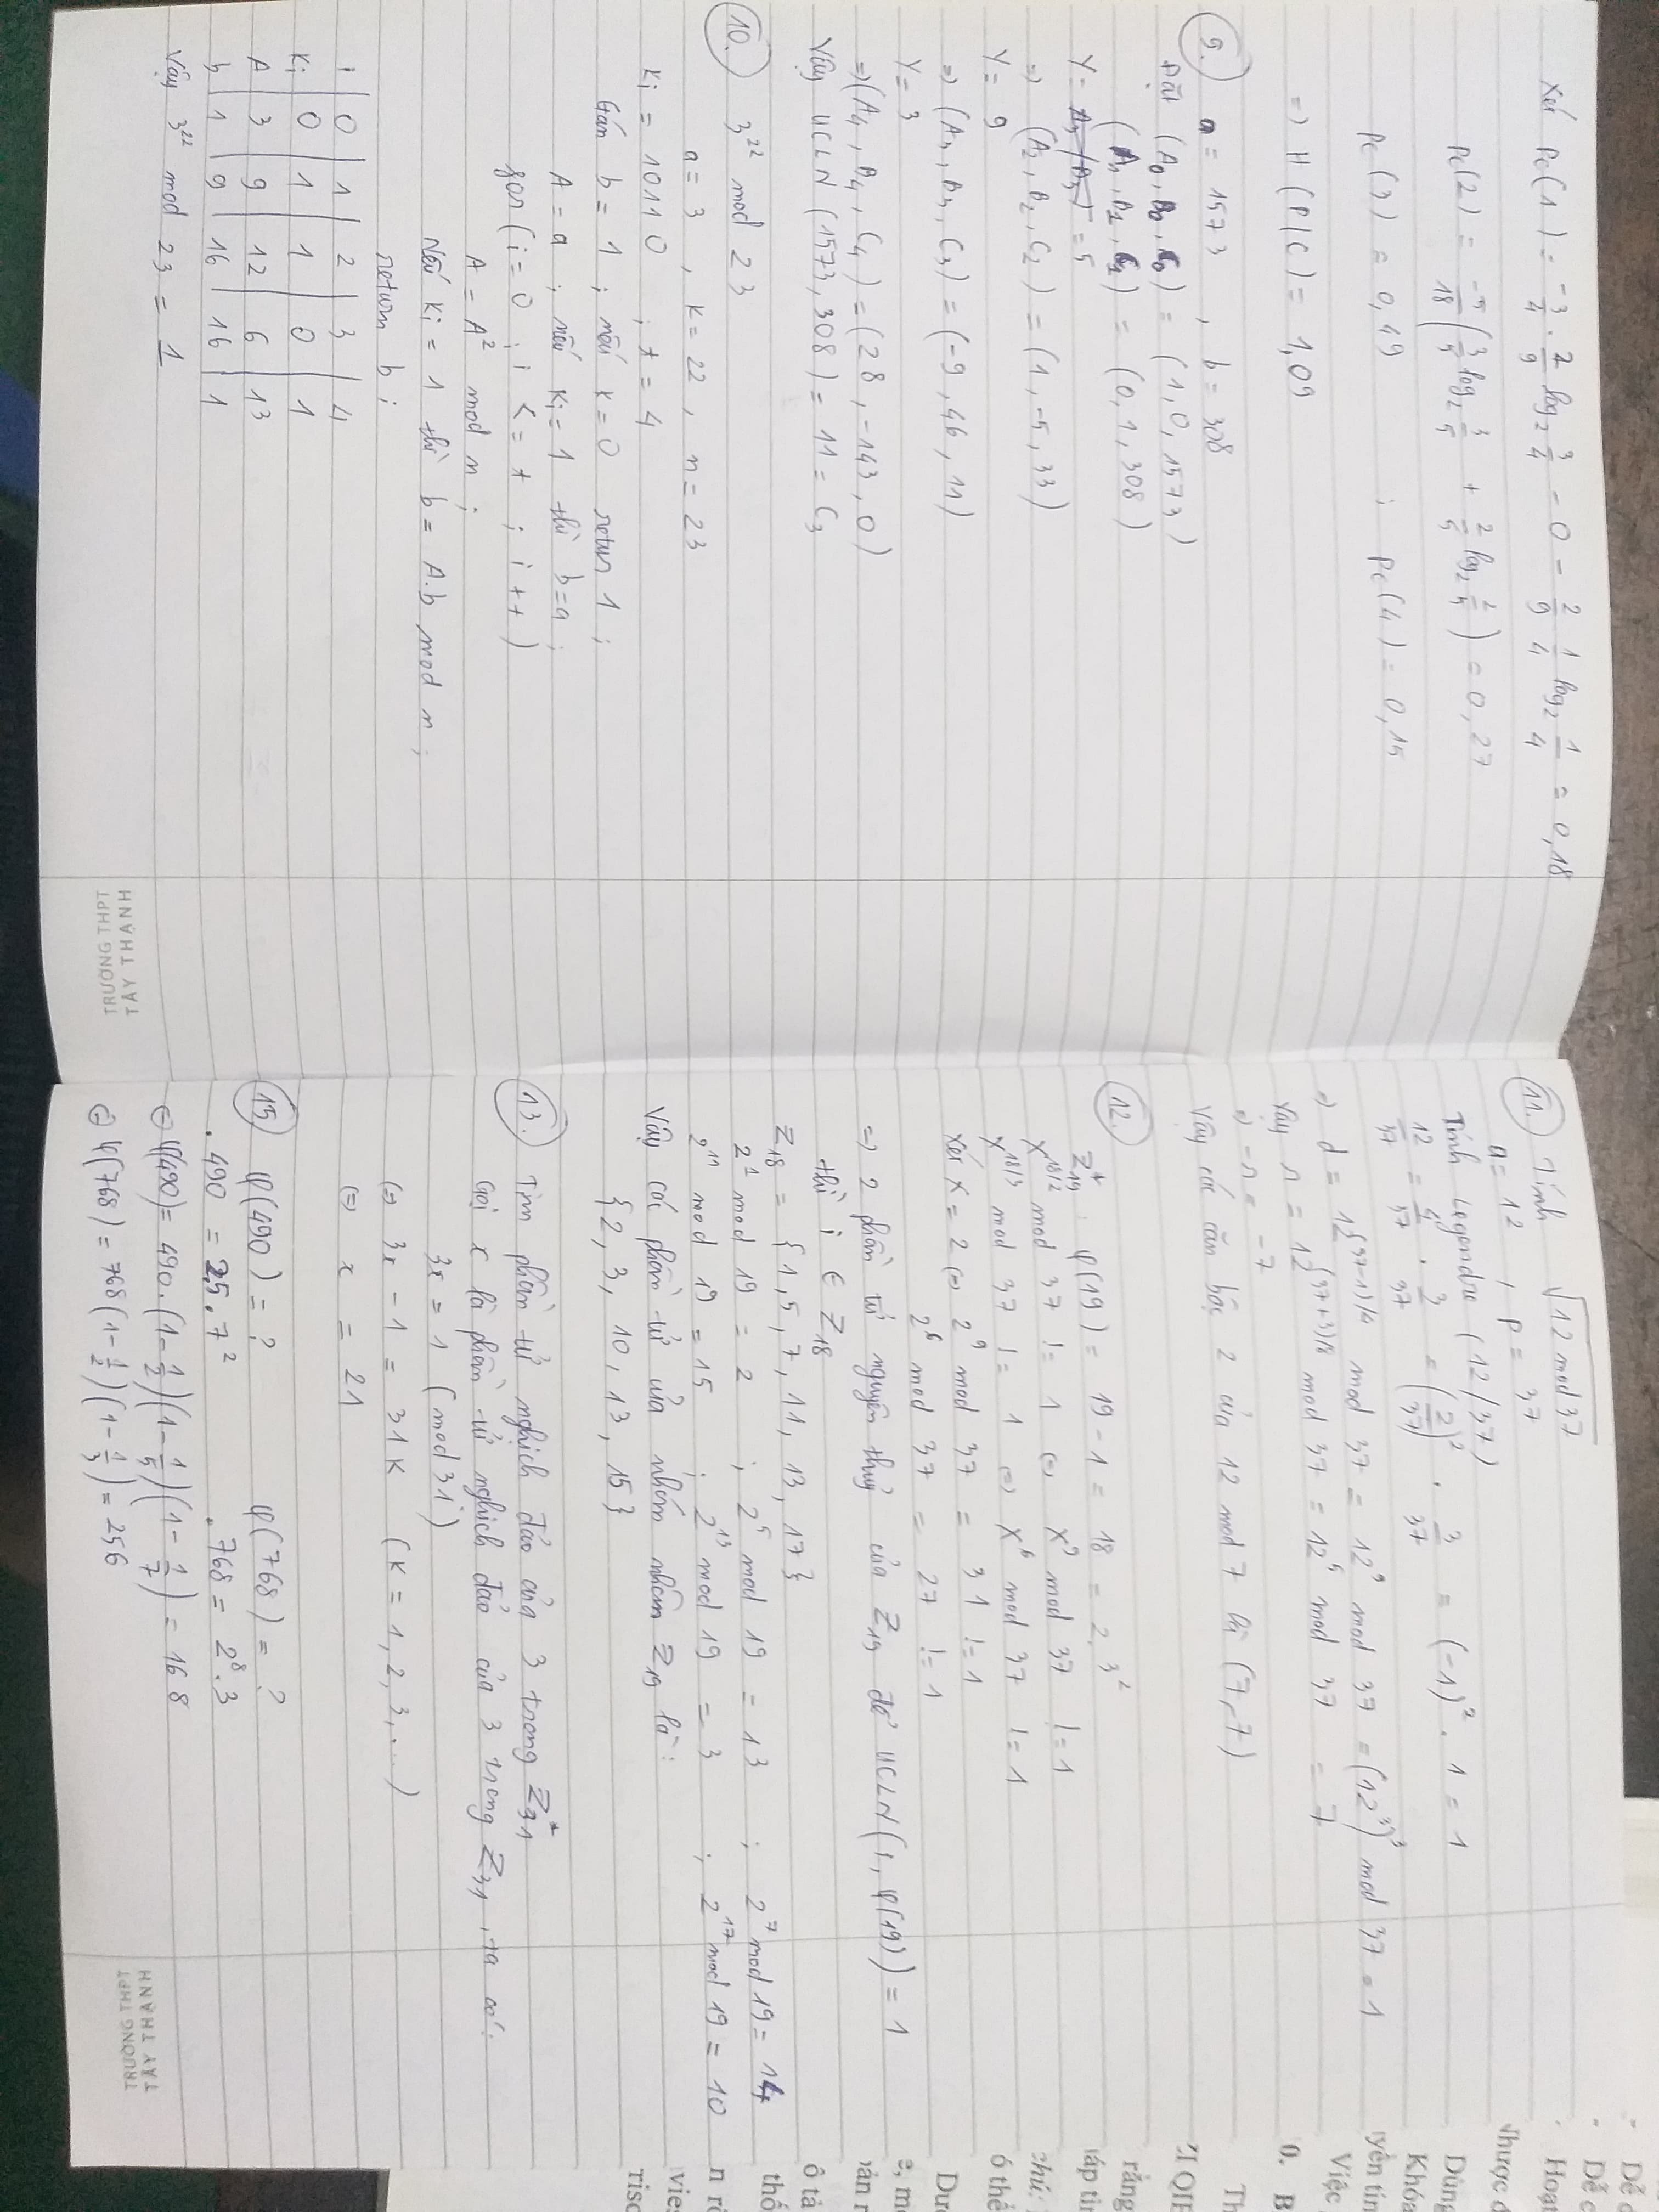 Xét Pc(1) = -3/4 . 7/9 log2 3/4 = 0 - 2/9 1/4 log2 1/4 = 0,18
Pc(2) = -5/18 (3/5 log2 3/5 + 2/5 log2 2/5) = 0,27
Pc(3) = 0,49 ; Pc(4) = 0,15
=> H(P|C) = 1,09
9. a = 1573 , b = 308
Đặt (A0, B0, C0) = (1, 0, 1573)
(A1, B1, C1) = (0, 1, 308)
Y = 5
=> (A2, B2, C2) = (1, -5, 33)
Y = 9
=> (A3, B3, C3) = (-9, 46, 11)
Y = 3
=> (A4, B4, C4) = (28, -143, 0)
Vậy UCLN (1573, 308) = 11 = C3
10. 3^22 mod 23
a = 3 , k = 22 , n = 23
Ki = 10110 ; t = 4
Gán b = 1 ; nếu k = 0 retur 1 ;
A = a ; nếu Ki = 1 thì b = a ;
for (i = 0 ; i <= t ; i++)
A = A² mod n ;
Nếu Ki = 1 thì b = A.b mod n ;
return b ;
i | 0 | 1 | 2 | 3 | 4
Ki | 0 | 1 | 1 | 0 | 1
A | 3 | 9 | 12 | 6 | 13
b | 1 | 9 | 16 | 16 | 1
Vậy 3^22 mod 23 = 1
TRƯỜNG THPT
TÂY THẠNH
11. Tính √12 mod 37
a = 12 , p = 37
Tính Legendre (12/37)
12/37 = 4/37 . 3/37 = (2/37)² . 3/37 = (-1)² . 1 = 1
=> d = 12^(37-1)/4 mod 37 = 12^9 mod 37 = (12³)³ mod 37 = 1
Vậy r = 12^(37+3)/8 mod 37 = 12^5 mod 37 = 7
=> -r = -7
Vậy các căn bậc 2 của 12 mod 7 là (7, -7)
12. Z19* . φ(19) = 19 - 1 = 18 = 2.3²
X^18/2 mod 37 != 1 <=> X^9 mod 37 != 1
X^18/3 mod 37 != 1 <=> X^6 mod 37 != 1
Xét X = 2 <=> 2^9 mod 37 = 31 != 1
2^6 mod 37 = 27 != 1
=> 2 phần tử nguyên thuỷ của Z19 để UCLN(i, φ(19)) = 1
thì i ∈ Z18
Z18 = {1, 5, 7, 11, 13, 17}
2^1 mod 19 = 2 ; 2^5 mod 19 = 13 ; 2^7 mod 19 = 14
2^11 mod 19 = 15 ; 2^13 mod 19 = 3 ; 2^17 mod 19 = 10
Vậy các phần tử của nhóm nhân Z19 là :
{2, 3, 10, 13, 15}
13. Tìm phần tử nghịch đảo của 3 trong Z31*
Gọi x là phần tử nghịch đảo của 3 trong Z31, ta có:
3x = 1 (mod 31)
<=> 3x - 1 = 31K (K = 1, 2, 3, ...)
<=> x = 21
15. φ(490) = ? φ(768) = ?
. 490 = 2.5.7² . 768 = 2^8.3
φ(490) = 490.(1 - 1/2)(1 - 1/5)(1 - 1/7) = 168
φ(768) = 768(1 - 1/2)(1 - 1/3) = 256
TRƯỜNG THPT
TÂY THẠNH
- Dễ c
- Dễ c
. Hoạt
Nhược đ
Dùng
Khóa
Việc
0. B
Th
ZI QIE
rằng
chú:
ó thể
Dướ
ô tả
thố
n r
vie
risc